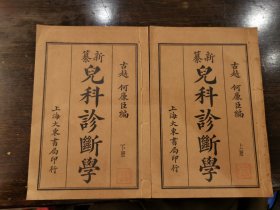 古越 何廉臣編
新纂 兒科診斷學
上冊
上海大東書局印行
古越 何廉臣編
新纂 兒科診斷學
下冊
上海大東書局印行